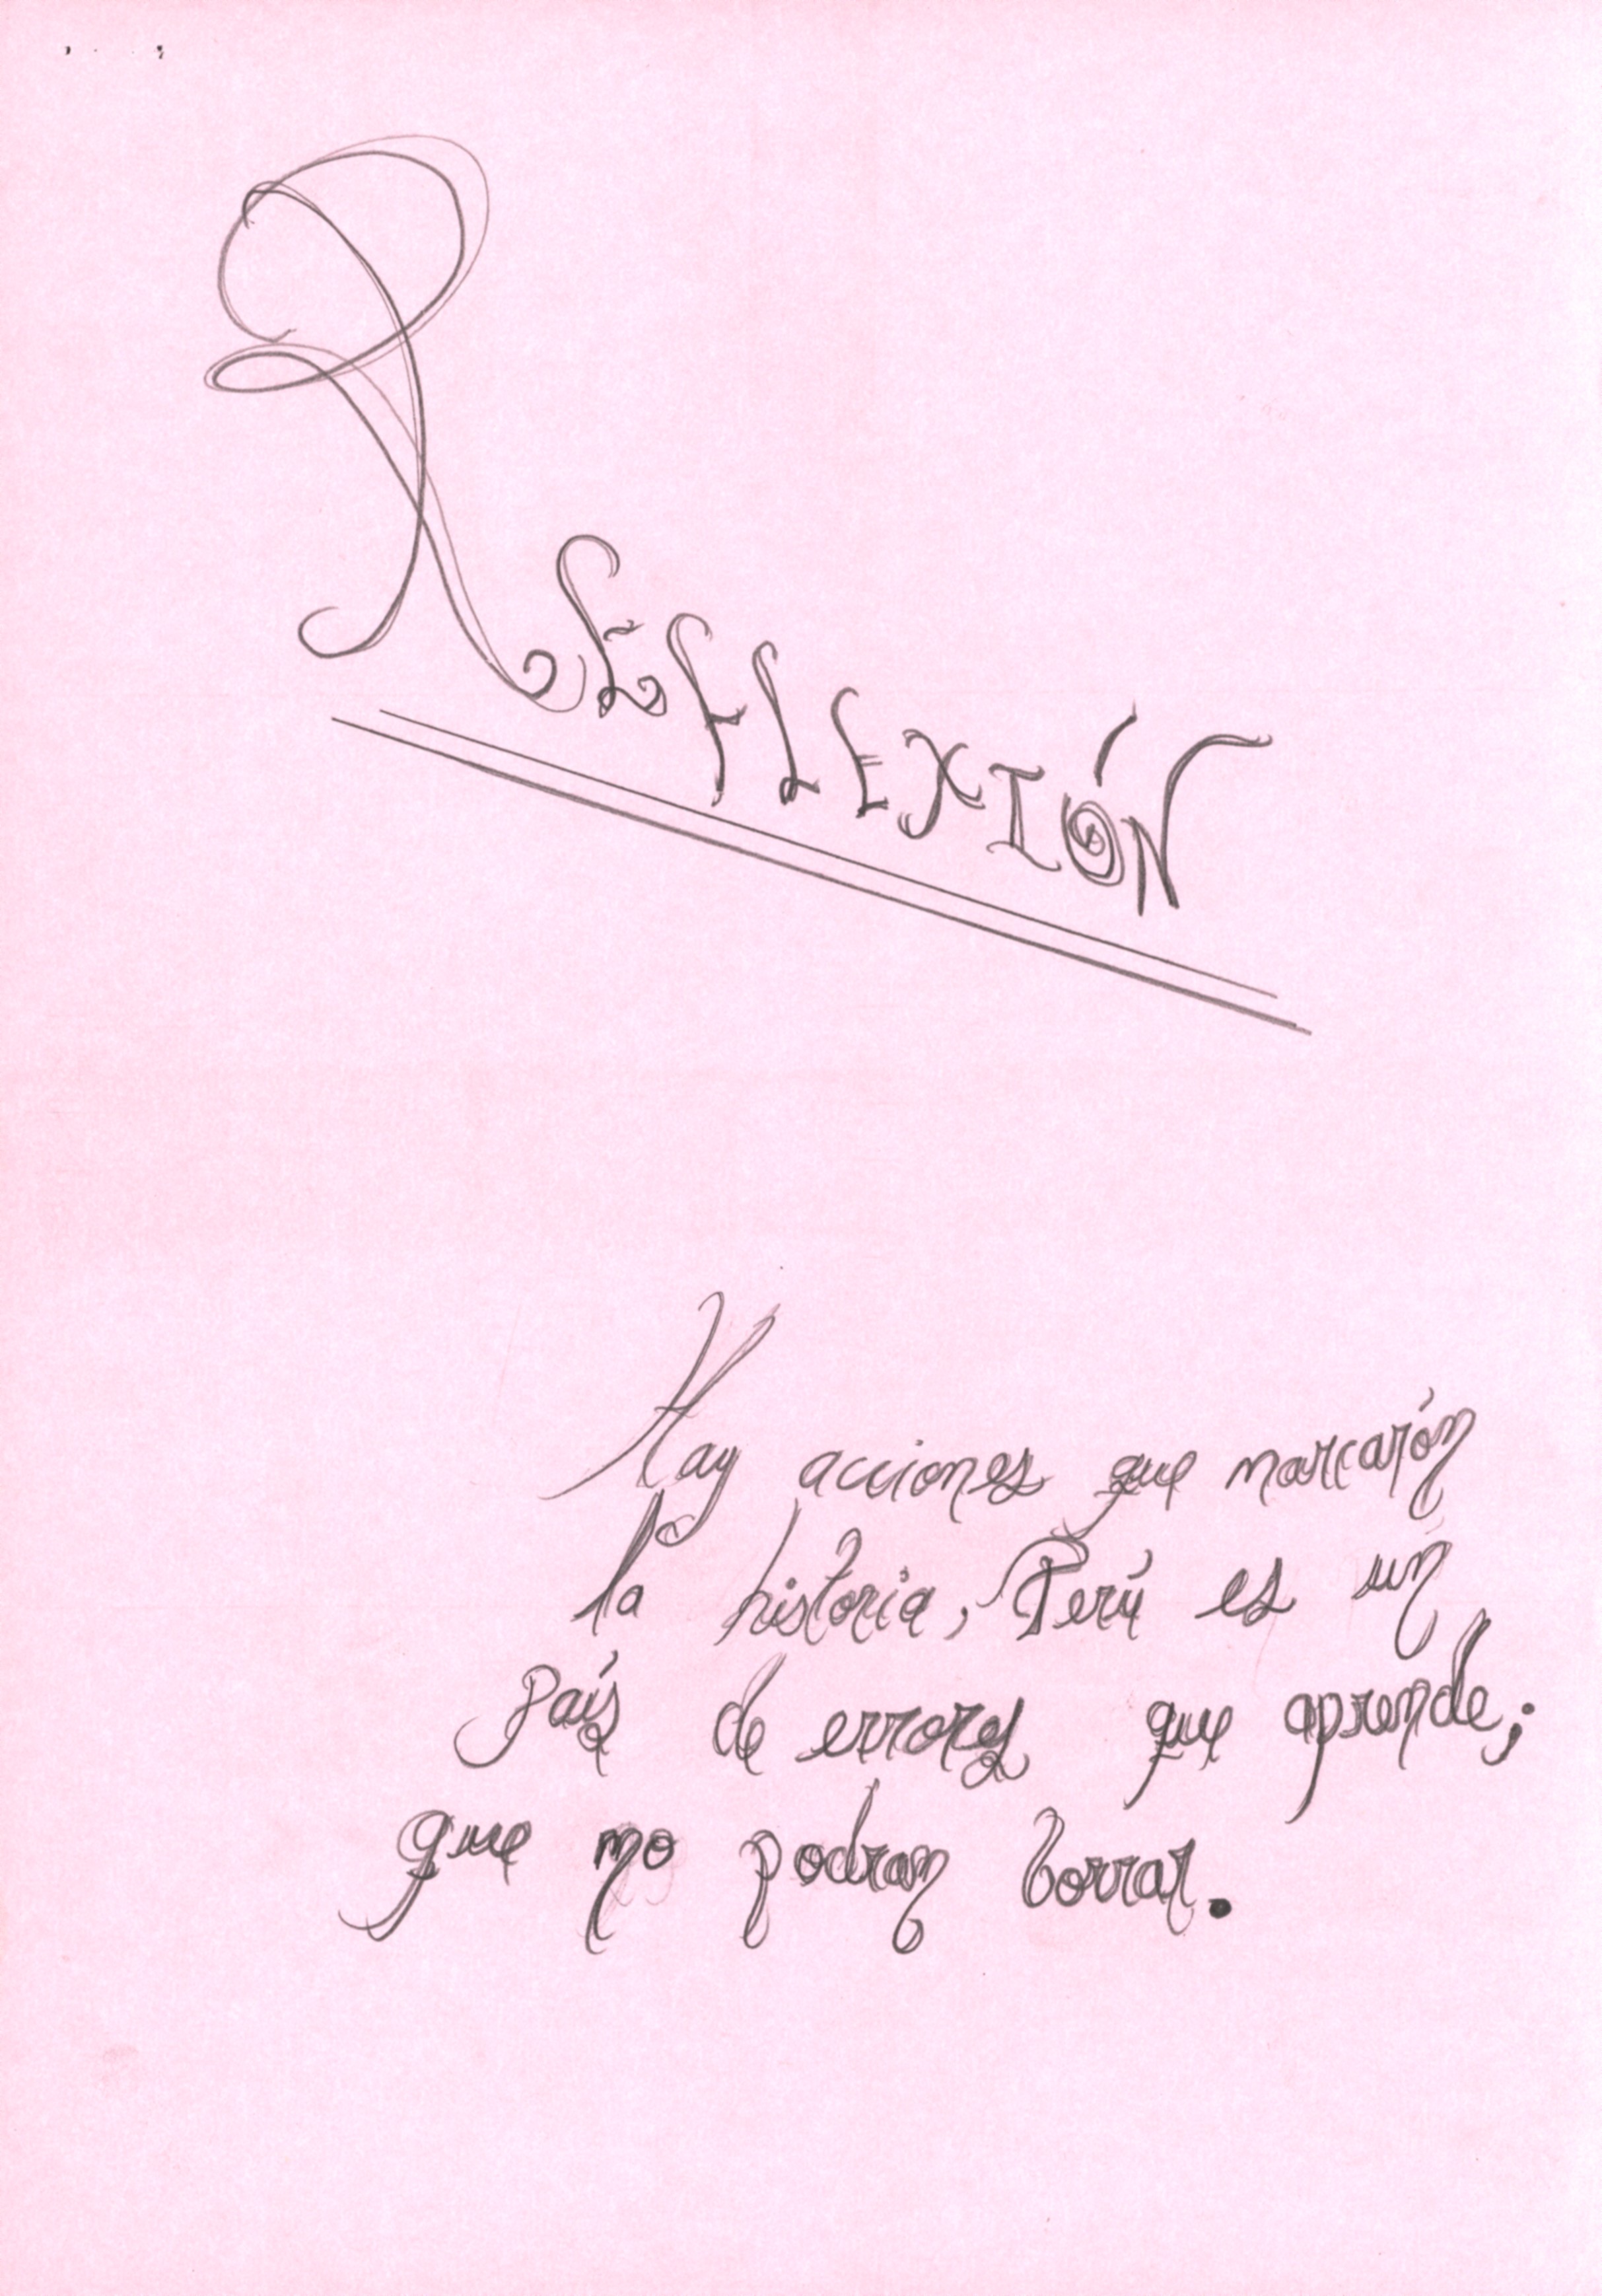 REFLEXIÓN
Hay acciones que marcarón
la historia, Perú es un
País de errores que aprende;
que no podran borrar.